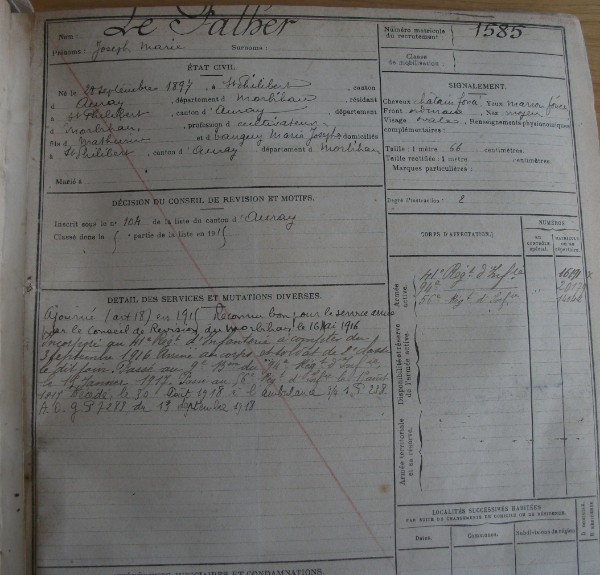 Nom : Le Palher
Prénoms : Joseph Marie Surnoms :
ÉTAT CIVIL.
Né le 28 septembre 1897, à St Philibert, canton
d'Auray, département du Morbihan, résidant
à St Philibert, canton d'Auray, département
du Morbihan, profession de cultivateur,
fils de Mathurin et de Marie Josèphe, domiciliés
à St Philibert, canton d'Auray, département du Morbihan.
Marié à
DÉCISION DU CONSEIL DE REVISION ET MOTIFS.
Inscrit sous le n° 104 de la liste du canton d'Auray
Classé dans la partie de la liste en 191
DETAIL DES SERVICES ET MUTATIONS DIVERSES.
Ajourné (art 18) en 191 Reconnu bon pour le service armé
par le Conseil de Revision du Morbihan le 16 Mai 1916
Incorporé au 41e Régt d'Infanterie à compter du
septembre 1916 Arrivé au corps et soldat de 2e classe
le dit jour. Passé au 9e Bon du 94e Régt d'Infie
le 14 Janvier 1917. Passé au Régt d'Infie le août
Décédé le 30 Août 1918 à
A. D. 7288 du 19 septembre 1918
Numéro matricule
du recrutement : 1585
Classe
de mobilisation :
SIGNALEMENT.
Cheveux châtain foncé Yeux marron foncé
Front Nez moyen
Visage ovale Renseignements physionomiques
complémentaires :
Taille : 1 mètre 66 centimètres.
Taille rectifiée : 1 mètre centimètres.
Marques particulières :
Degré d'instruction : 2
CORPS D'AFFECTATION.
NUMÉROS
au contrôle spécial.
matricule ou au répertoire.
Armée active.
41e Régt d'Infie
94e
Régt d'Infie
Disponibilité et réserve de l'armée active.
Armée territoriale et sa réserve.
LOCALITÉS SUCCESSIVES HABITÉES
PAR SUITE DE CHANGEMENTS DE DOMICILE OU DE RÉSIDENCE.
Dates. Communes. Subdivisions de région.